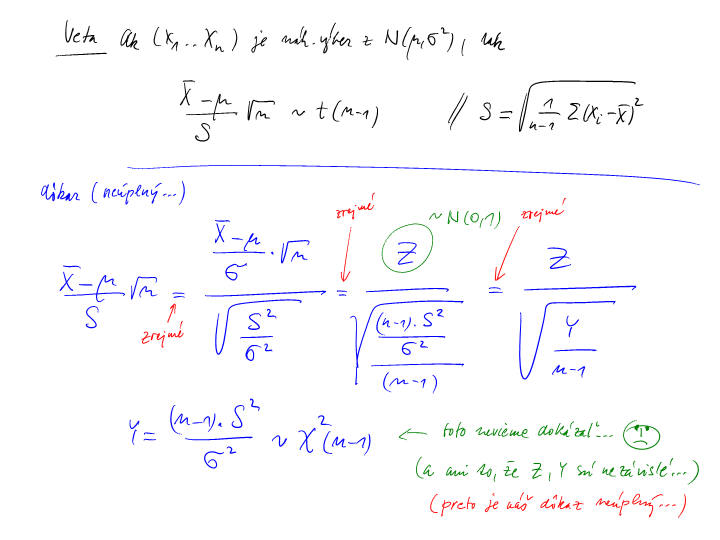 Veta Ak (X1 .. Xn) je náh. výber z N(μ,σ²), tak
(X̄ − μ)/S √n ~ t(n−1) // S = √(1/(n−1) Σ(Xi − X̄)²)
dôkaz (neúplný...)
(X̄ − μ)/S √n = ((X̄ − μ)/σ · √n) / √(S²/σ²) = Z / √(((n−1). S²/σ²)/(n−1)) = Z / √(Y/(n−1))
zrejmé
zrejmé
~ N(0,1)
zrejmé
Y = (n−1). S²/σ² ~ χ²(n−1) ← toto nevieme dokázať...
(a ani to, že Z, Y sú nezávislé...)
(preto je náš dôkaz neúplný...)